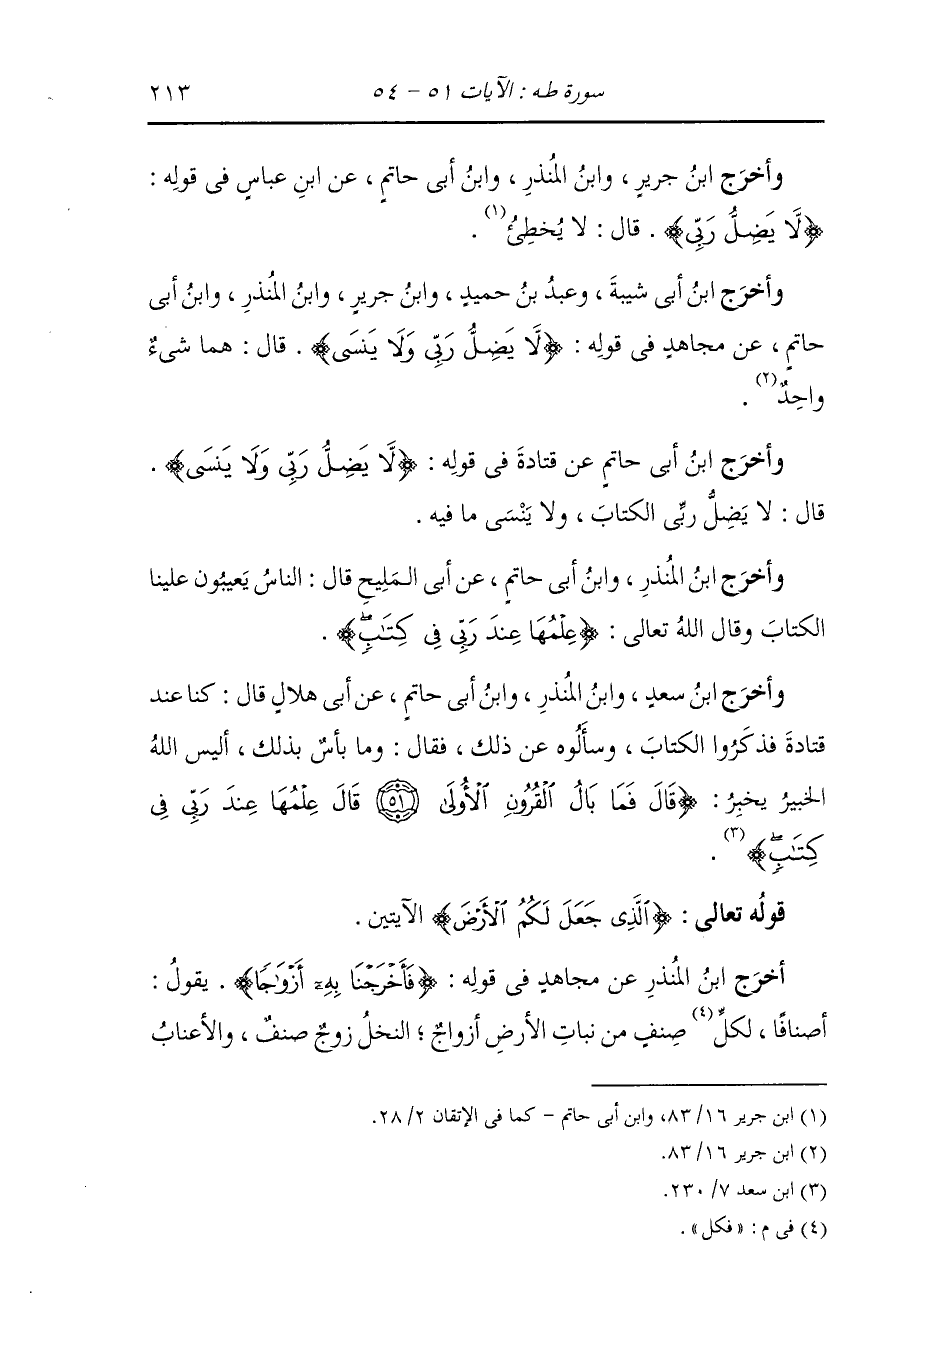 سورة طه : الآيات ٥١ - ٥٤ ٢١٣
وأخرَج ابنُ جريرٍ ، وابنُ المُنذرِ ، وابنُ أبى حاتمٍ ، عن ابنِ عباسٍ فى قولِه :
﴿لَّا يَضِلُّ رَبِّى﴾ . قال : لا يُخطِئُ(١) .
وأخرَج ابنُ أبى شيبةَ ، وعبدُ بنُ حميدٍ ، وابنُ جريرٍ ، وابنُ المُنذرِ ، وابنُ أبى
حاتمٍ ، عن مجاهدٍ فى قولِه : ﴿لَّا يَضِلُّ رَبِّى وَلَا يَنسَى﴾ . قال : هما شىءٌ
واحِدٌ(٢) .
وأخرَج ابنُ أبى حاتمٍ عن قتادةَ فى قولِه : ﴿لَّا يَضِلُّ رَبِّى وَلَا يَنسَى﴾ .
قال : لا يَضِلُّ ربِّى الكتابَ ، ولا يَنْسَى ما فيه .
وأخرَج ابنُ المُنذرِ ، وابنُ أبى حاتمٍ ، عن أبى المَلِيحِ قال : الناسُ يَعيبُون علينا
الكتابَ وقال اللهُ تعالى : ﴿عِلْمُهَا عِندَ رَبِّى فِى كِتَٰبٍۖ﴾ .
وأخرَج ابنُ سعدٍ ، وابنُ المُنذرِ ، وابنُ أبى حاتمٍ ، عن أبى هلالٍ قال : كنا عند
قتادةَ فذكَرُوا الكتابَ ، وسألُوه عن ذلك ، فقال : وما بأسٌ بذلك ، أليس اللهُ
الخبيرُ يخبِرُ : ﴿قَالَ فَمَا بَالُ ٱلْقُرُونِ ٱلْأُولَىٰ ۝٥١ قَالَ عِلْمُهَا عِندَ رَبِّى فِى
كِتَٰبٍۖ﴾(٣) .
قولُه تعالى : ﴿ٱلَّذِى جَعَلَ لَكُمُ ٱلْأَرْضَ﴾ الآيتين .
أخرَج ابنُ المُنذرِ عن مجاهدٍ فى قولِه : ﴿فَأَخْرَجْنَا بِهِۦٓ أَزْوَٰجًا﴾ . يقولُ :
أصنافًا ، لكلِّ(٤) صِنفٍ من نباتِ الأرضِ أزواجٌ ؛ النخلُ زوجٌ صنفٌ ، والأعنابُ
(١) ابن جرير ١٦/ ٨٣، وابن أبى حاتم - كما فى الإتقان ٢/ ٢٨.
(٢) ابن جرير ١٦/ ٨٣.
(٣) ابن سعد ٧/ ٢٣٠.
(٤) فى م : « فكل » .